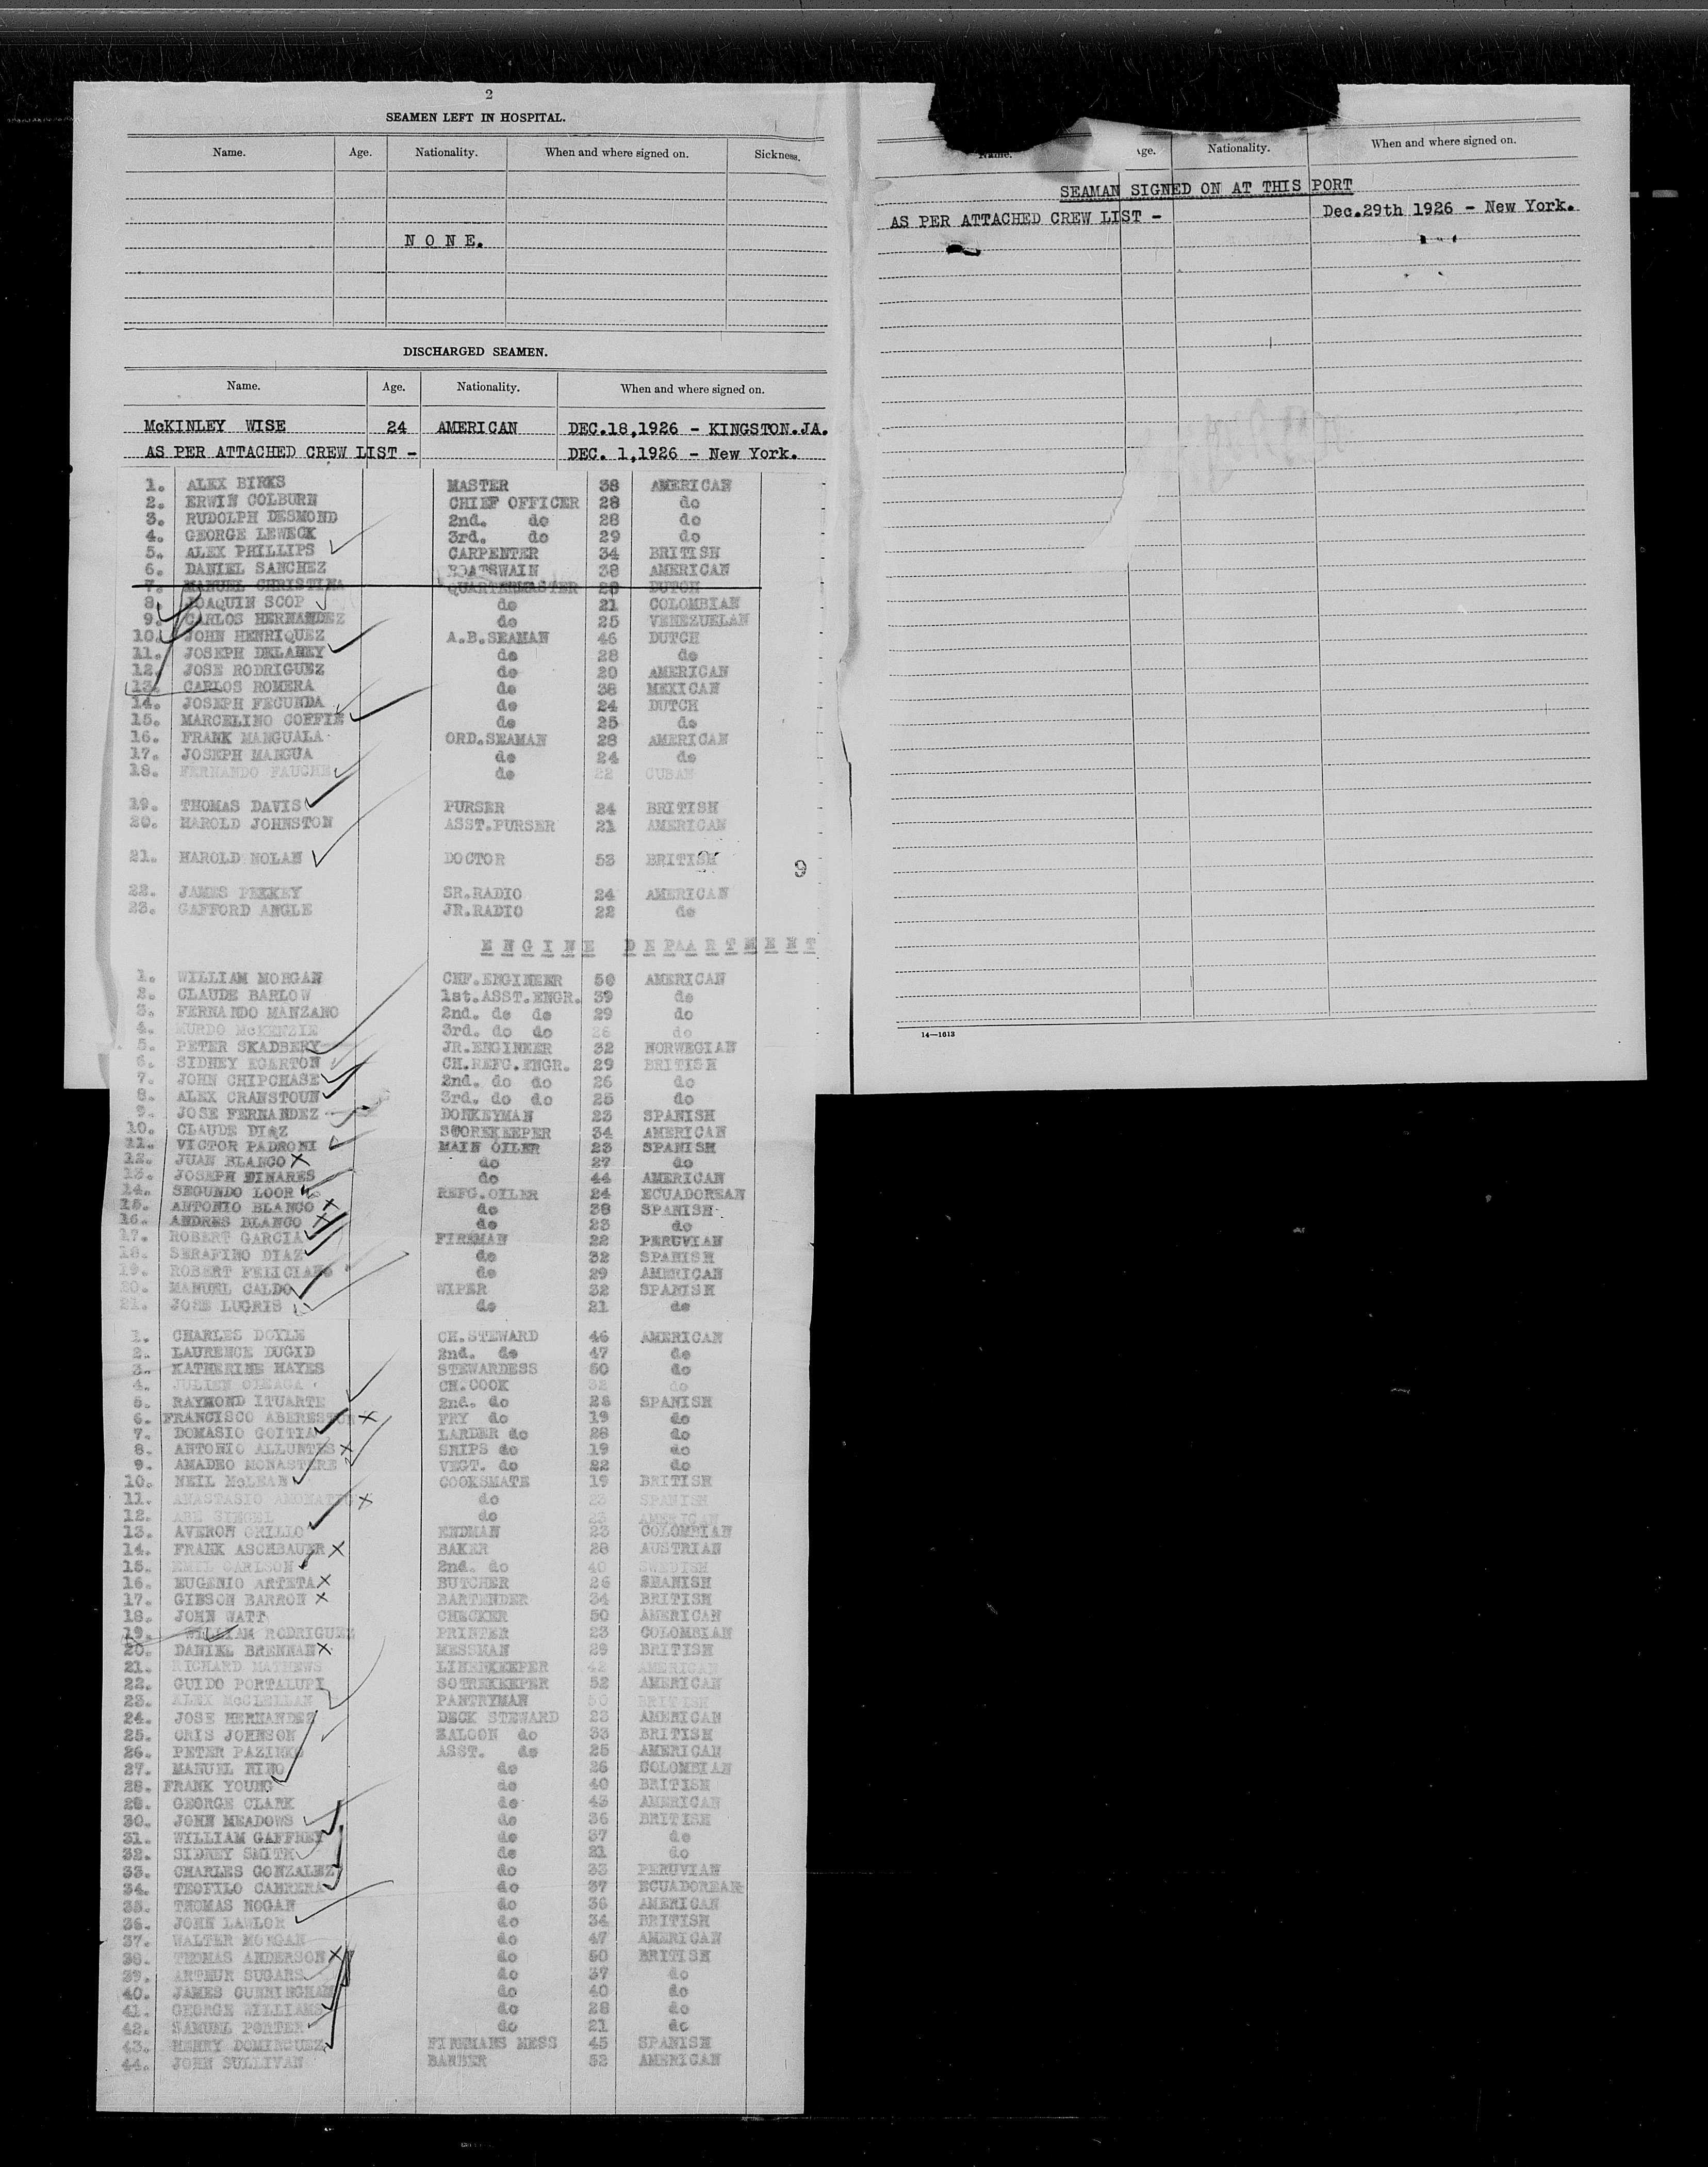 2
SEAMEN LEFT IN HOSPITAL.
Name. Age. Nationality. When and where signed on. Sickness.
N O N E.
DISCHARGED SEAMEN.
Name. Age. Nationality. When and where signed on.
McKINLEY WISE 24 AMERICAN DEC.18,1926 - KINGSTON.JA.
AS PER ATTACHED CREW LIST - DEC. 1,1926 - New York.
1. ALEX BIRKS MASTER 38 AMERICAN
2. ERWIN COLBURN CHIEF OFFICER 28 do
3. RUDOLPH DESMOND 2nd. do 28 do
4. GEORGE LEWECK 3rd. do 29 do
5. ALEX PHILLIPS CARPENTER 34 BRITISH
6. DANIEL SANCHEZ BOATSWAIN 38 AMERICAN
7. MANUEL CHRISTINA QUARTERMASTER 28 DUTCH
8. JOAQUIN SCOP do 21 COLOMBIAN
9. CARLOS HERNANDEZ do 25 VENEZUELAN
10. JOHN HENRIQUEZ A.B.SEAMAN 46 DUTCH
11. JOSEPH DELANEY do 28 do
12. JOSE RODRIGUEZ do 20 AMERICAN
13. CARLOS ROMERA do 38 MEXICAN
14. JOSEPH FECUNDA do 24 DUTCH
15. MARCELINO COFFIE do 25 do
16. FRANK MANGUALA ORD.SEAMAN 28 AMERICAN
17. JOSEPH MANGUA do 24 do
18. FERNANDO FAUCHE do 22 CUBAN
19. THOMAS DAVIS PURSER 24 BRITISH
20. HAROLD JOHNSTON ASST.PURSER 21 AMERICAN
21. HAROLD NOLAN DOCTOR 53 BRITISH
9
22. JAMES PEKKEY SR.RADIO 24 AMERICAN
23. GAFFORD ANGLE JR.RADIO 22 do
E N G I N E D E P A A R T M E N T
1. WILLIAM MORGAN CHF.ENGINEER 50 AMERICAN
2. CLAUDE BARLOW 1st.ASST.ENGR. 39 do
3. FERNANDO MANZANO 2nd. do do 29 do
4. MURDO McKENZIE 3rd. do do 26 do
5. PETER SKADBERY JR.ENGINEER 32 NORWEGIAN
6. SIDNEY EGERTON CH.REFG.ENGR. 29 BRITISH
7. JOHN CHIPCHASE 2nd. do do 26 do
8. ALEX CRANSTOUN 3rd. do do 25 do
9. JOSE FERNANDEZ DONKEYMAN 23 SPANISH
10. CLAUDE DIAZ STOREKEEPER 34 AMERICAN
11. VICTOR PADRONI MAIN OILER 23 SPANISH
12. JUAN BLANCO X do 27 do
13. JOSEPH DINARES do 44 AMERICAN
14. SEGUNDO LOOR REFG.OILER 24 ECUADOREAN
15. ANTONIO BLANCO X do 38 SPANISH
16. ANDRES BLANCO X do 23 do
17. ROBERT GARCIA FIREMAN 22 PERUVIAN
18. SERAFINO DIAZ do 32 SPANISH
19. ROBERT FELICIANO do 29 AMERICAN
20. MANUEL CALDO WIPER 32 SPANISH
21. JOSE LUGRIS do 21 do
1. CHARLES DOYLE CH.STEWARD 46 AMERICAN
2. LAURENCE DUGID 2nd. do 47 do
3. KATHERINE HAYES STEWARDESS 50 do
4. JULIEN OLEAGA CH.COOK 32 do
5. RAYMOND ITUARTE 2nd. do 28 SPANISH
6. FRANCISCO X FRY do 19 do
7. DOMASIO GOITIA LARDER do 28 do
8. ANTONIO ALLUNTES X SHIPS do 19 do
9. AMADEO MONASTERE VEGT. do 22 do
10. NEIL McLEAN COOKSMATE 19 BRITISH
11. ANASTASIO X do 23 SPANISH
12. ABE SIEGEL do 23 AMERICAN
13. AVERON GRILLO ENDMAN 23 COLOMBIAN
14. FRANK ASCHBAUER X BAKER 28 AUSTRIAN
15. EMIL CARLSON 2nd. do 40 SWEDISH
16. EUGENIO ARTETA X BUTCHER 26 SPANISH
17. GIBSON BARRON X BARTENDER 34 BRITISH
18. JOHN WATT CHECKER 50 AMERICAN
19. WILLIAM RODRIGUEZ PRINTER 23 COLOMBIAN
20. DANIEL BRENNAN X MESSMAN 29 BRITISH
21. RICHARD MATHEWS LINENKEEPER 42 AMERICAN
22. GUIDO PORTALUPI SOTREKEEPER 52 AMERICAN
23. ALEX McCLELLAN PANTRYMAN 50 BRITISH
24. JOSE HERNANDEZ DECK STEWARD 23 AMERICAN
25. CRIS JOHNSON SALOON do 33 BRITISH
26. PETER PAZINKO ASST. do 25 AMERICAN
27. MANUEL NINO do 26 COLOMBIAN
28. FRANK YOUNG do 40 BRITISH
29. GEORGE CLARK do 43 AMERICAN
30. JOHN MEADOWS do 36 BRITISH
31. WILLIAM GAFFNEY do 37 do
32. SIDNEY SMITH do 21 do
33. CHARLES GONZALEZ do 33 PERUVIAN
34. TEOFILO CABRERA do 37 ECUADOREAN
35. THOMAS HOGAN do 36 AMERICAN
36. JOHN LAWLOR do 34 BRITISH
37. WALTER MORGAN do 47 AMERICAN
38. THOMAS ANDERSON X do 50 BRITISH
39. ARTHUR SUGARS do 37 do
40. JAMES CUNNINGHAM do 40 do
41. GEORGE WILLIAMS do 28 do
42. SAMUEL PORTER do 21 do
43. HENRY DOMINGUEZ FIREMANS MESS 45 SPANISH
44. JOHN SULLIVAN BARBER 52 AMERICAN
Name. Age. Nationality. When and where signed on.
SEAMAN SIGNED ON AT THIS PORT
AS PER ATTACHED CREW LIST - Dec.29th 1926 - New York.
14—1613